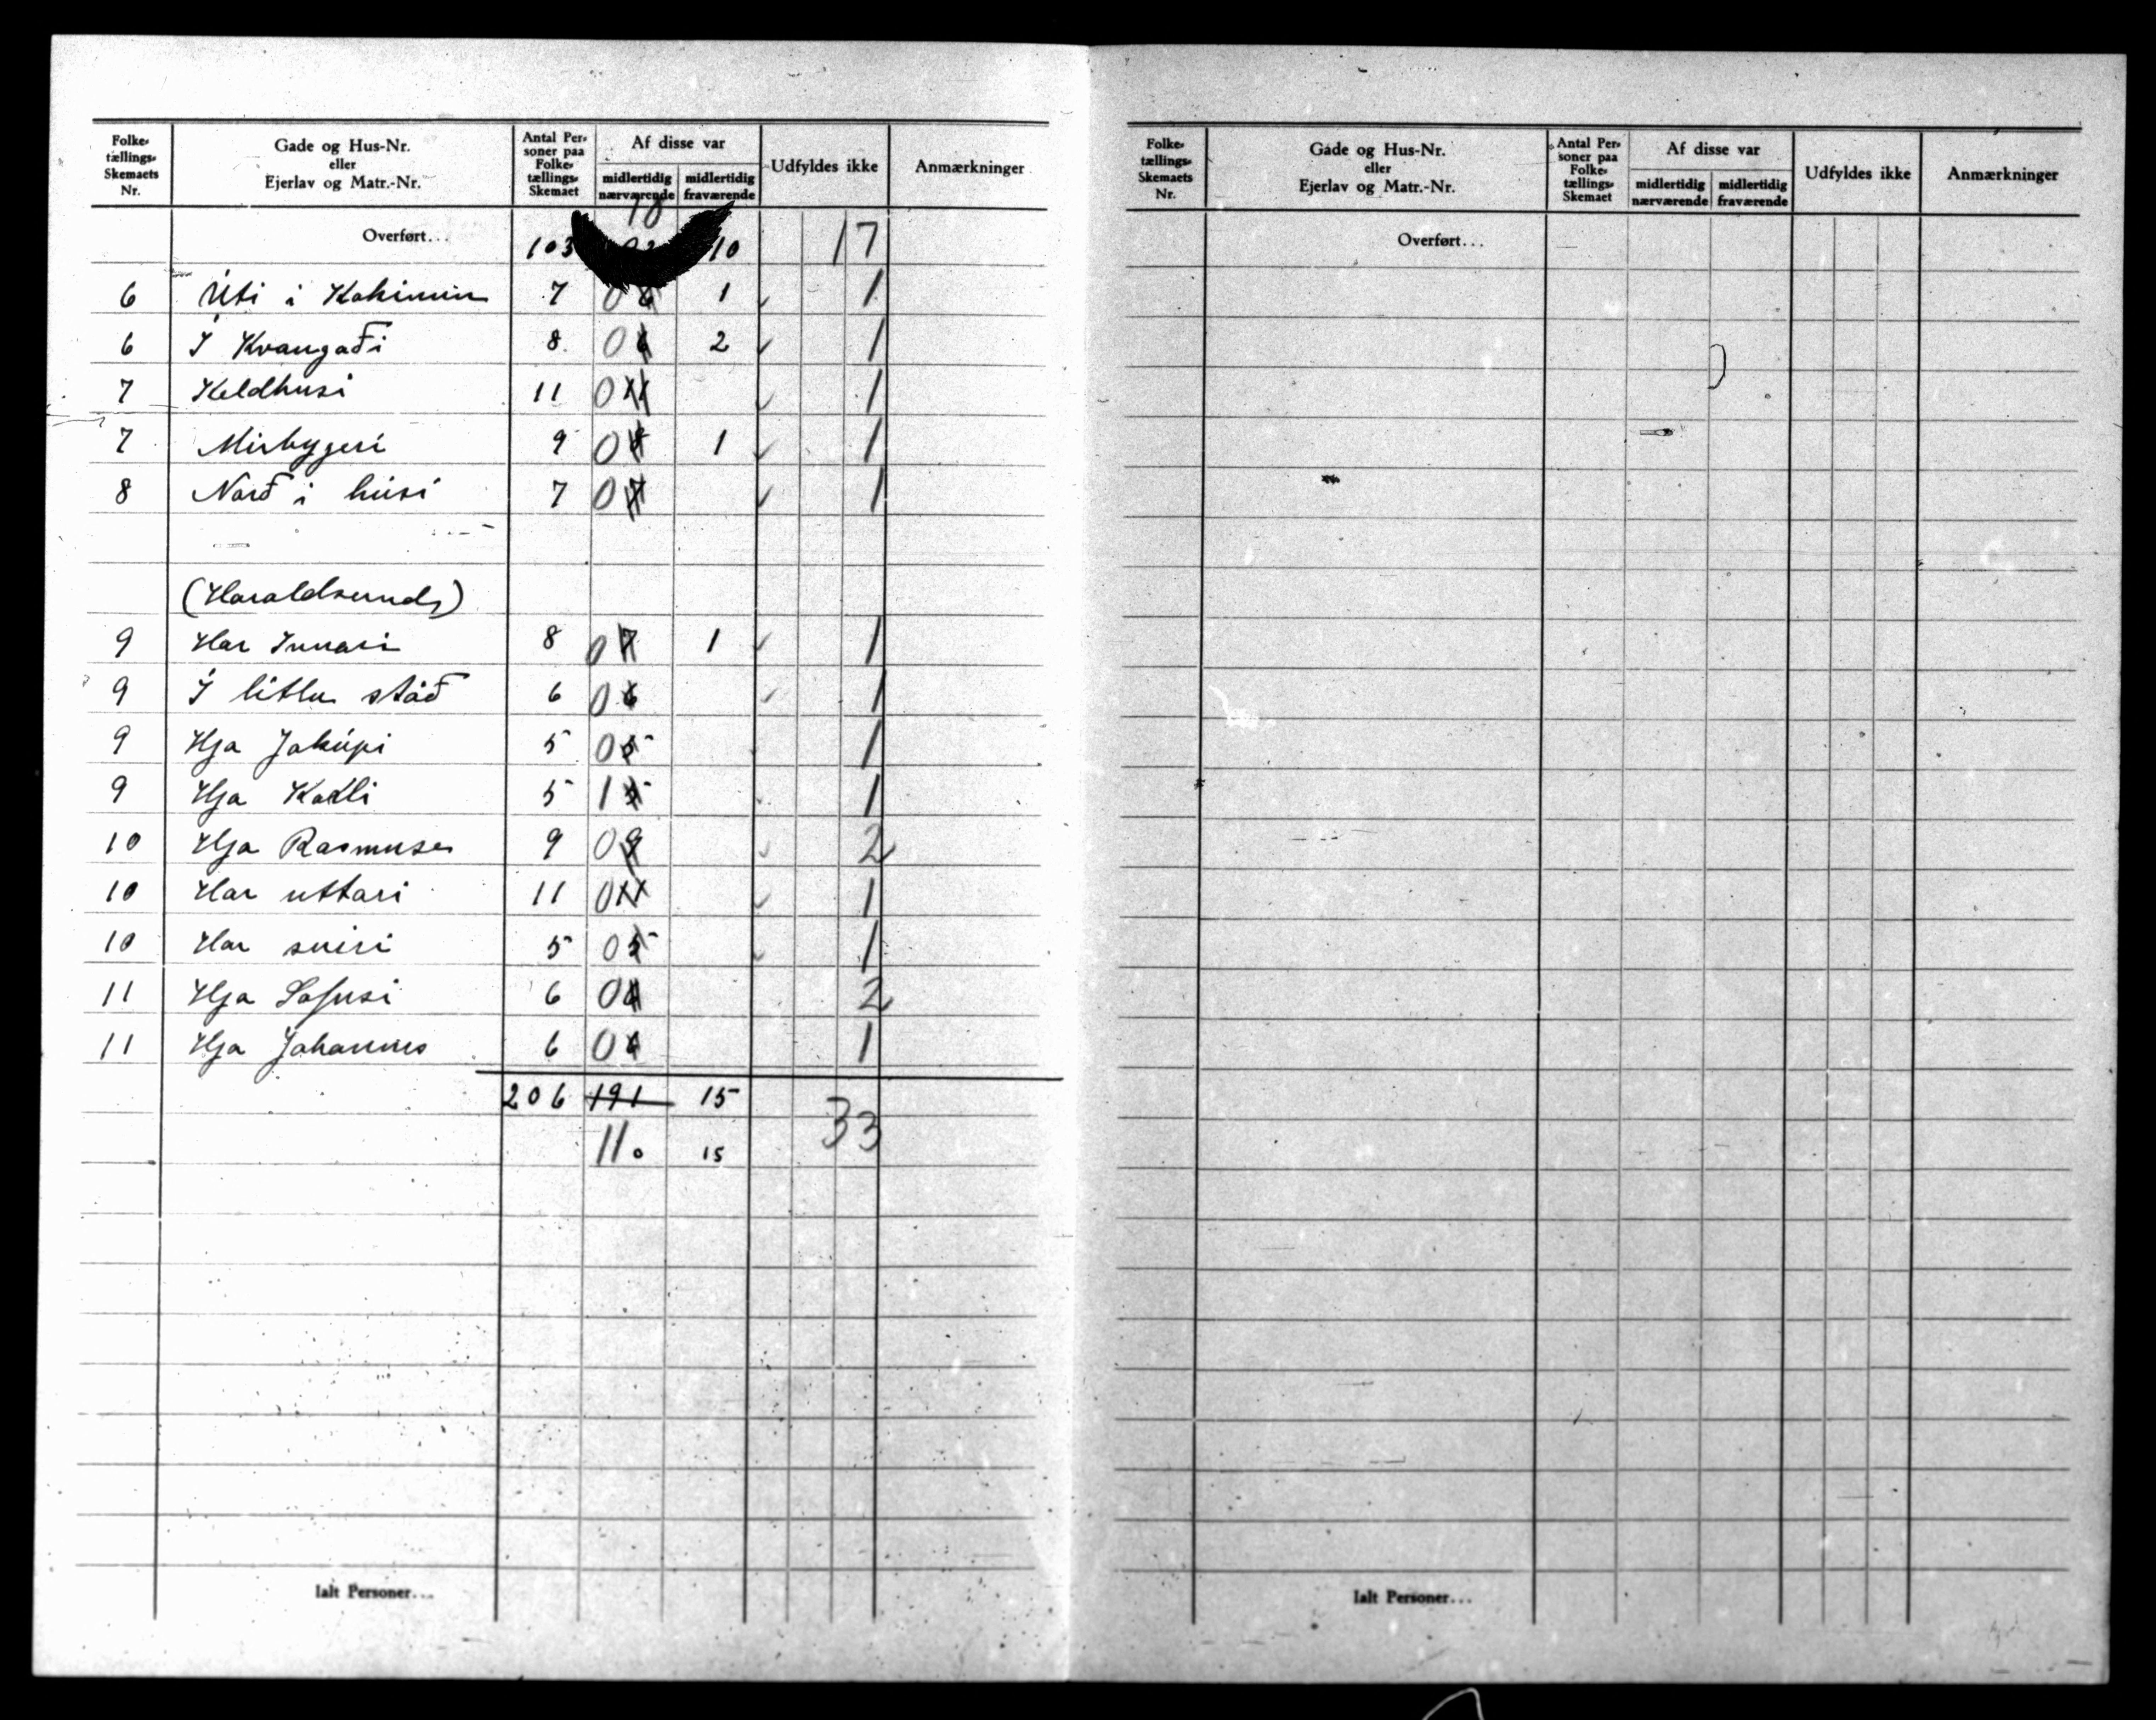 Folke-tællings-Skemaets Nr. Gade og Hus-Nr. eller Ejerlav og Matr.-Nr. Antal Personer paa Folketællings-Skemaet Af disse var midlertidig nærværende midlertidig fraværende Udfyldes ikke Anmærkninger
Overført... 103 10 10 17
6 Úti i Kokinum 7 0 1 1
6 Í Kvangaði 8 0 2 1
7 Keldhusi 11 0 1
7 Mirbygeri 9 0 1 1
8 Norð i húsi 7 0 1
(Haraldsunds)
9 Har Innari 8 0 1 1
9 Í litlu stáð 6 0 1
9 Hja Jakúpi 5 0 1
9 Hja Kalli 5 1 1
10 Hja Rasmuses 9 0 2
10 Har uttari 11 0 1
10 Har 5 0 1
11 Hja 6 0 2
11 Hja Johannus 6 0 1
206 191 15 33
11. 15
Ialt Personer...
Folke-tællings-Skemaets Nr. Gade og Hus-Nr. eller Ejerlav og Matr.-Nr. Antal Personer paa Folketællings-Skemaet Af disse var midlertidig nærværende midlertidig fraværende Udfyldes ikke Anmærkninger
Overført...
Ialt Personer...